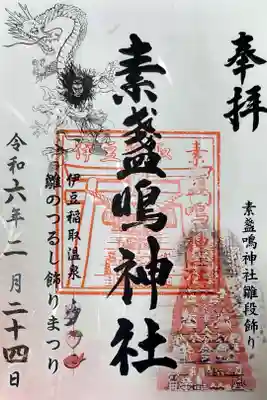 奉拝
素盞嗚神社雛段飾り
素盞嗚神社
伊豆稲取温泉
雛のつるし飾りまつり
令和六年二月二十四日